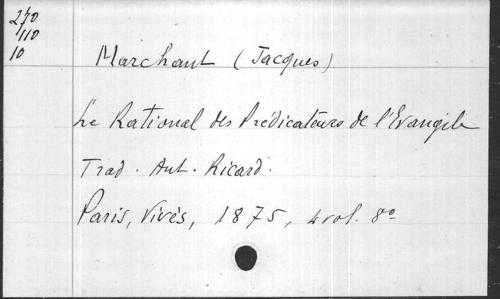 270
110
10
Marchant (Jacques)
Le Rational des Prédicateurs de l'Evangile
Trad. Ant. Ricard.
Paris, Vivès, 1875, 4 vol. 8º